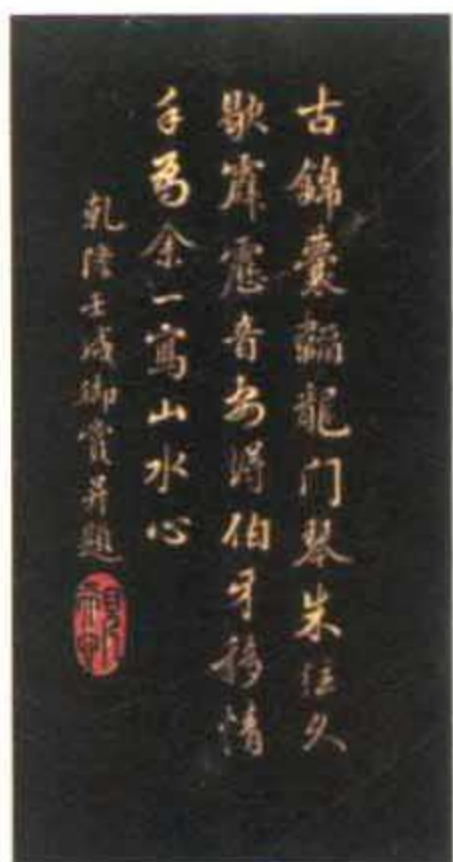 古錦囊韜龍门琴朱弦久
歇霹靂音安得伯牙移情
手為余一寫山水心
乾隆壬戌御賞并題